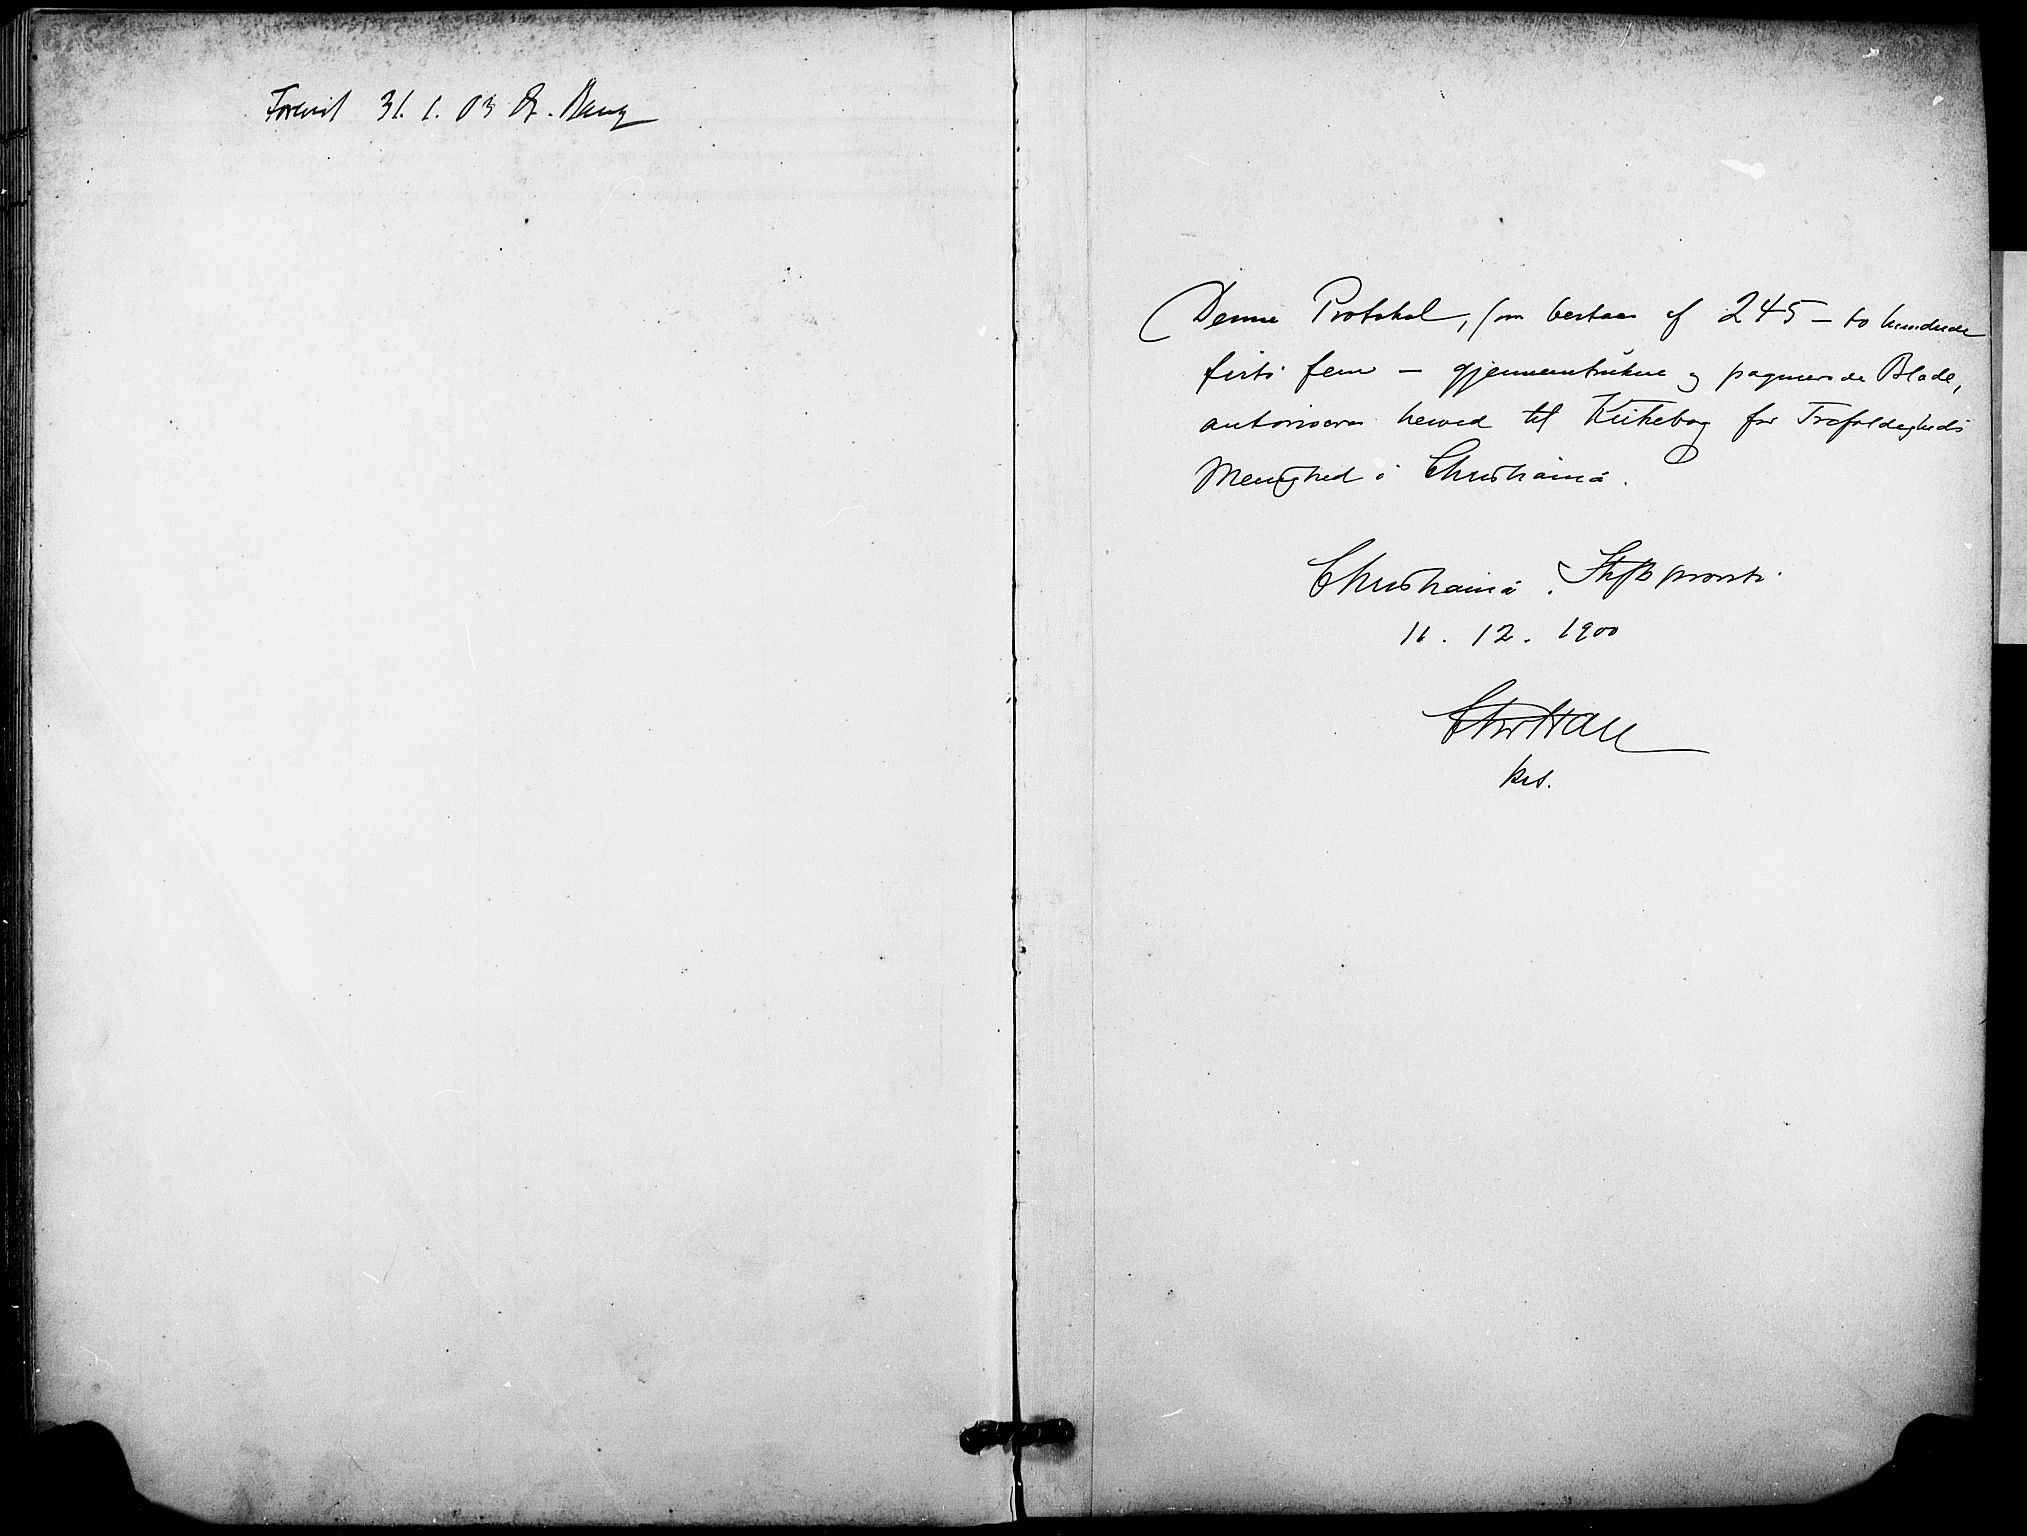 Forevist 31. 1. 03 A. Bang
Denne Protokol, som bestaar af 245 – to hundrede
firti fem – gjennemtrukne og paginerede Blade,
autoriseres herved til Kirkebog for Trefoldigheds
Menighed i Christiania.
Christiania Stiftsprovsti
11. 12. 1900
kst.